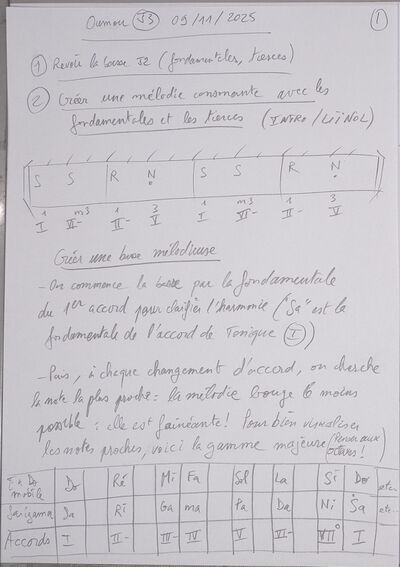 Oumou J3 09/11/2025 1
1 Revoir la basse J2 (fondamentales, tierces)
2 Créer une mélodie consonante avec les
fondamentales et les tierces (INTRO/
S S R N S S R N
1 m3 1 3 1 m3 1 3
I VI- II- V I VI- II- V
Créer une basse mélodieuse
- On commence la basse par la fondamentale
du 1er accord pour clarifier l'harmonie ("Sa" est la
fondamentale de l'accord de Tonique I)
- Puis, à chaque changement d'accord, on cherche
la note la plus proche : la mélodie bouge le moins
possible : elle est fainéante ! Pour bien visualiser
les notes proches, voici la gamme majeure (Penser aux
octaves !)
Do mobile Do Ré Mi Fa Sol La Si Do etc..
Sarigama Sa Ri Ga ma Pa Da Ni Ṡa etc..
Accords I II- III- IV V VI- VII° I